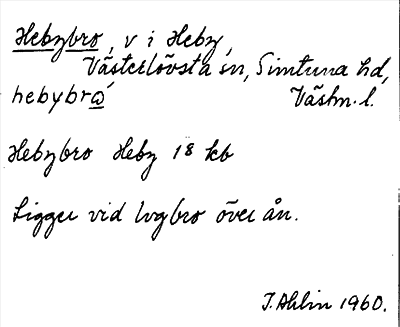 Hebybro, v i Heby,
Västerlövsta sn, Simtuna hd,
hebybrὼ Västm. l.
Hebybro Heby 18 kb
Ligger vid lvgbro över ån.
I. Ahlin 1960.